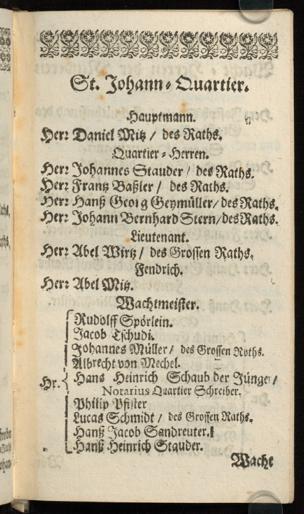 St. Johann-Quartier.
Hauptmann.
Herr Daniel Mitz / des Raths.
Quartier-Herren.
Herr Johannes Stauder / des Raths.
Herr Frantz Baßler / des Raths.
Herr Hanß Georg Geymüller / des Raths.
Herr Johann Bernhard Stern / des Raths.
Lieutenant.
Herr Abel Wirtz / des Grossen Raths.
Fendrich.
Herr Abel Mitz.
Wachtmeister.
Rudolff Spörlein.
Jacob Tschudi.
Johannes Müller / des Grossen Raths.
Albrecht von Mechel.
Hr. Hans Heinrich Schaub der Jünger /
Notarius Quartier Schreiber.
Philip Pfister
Lucas Schmidt / des Grossen Raths.
Hanß Jacob Sandreuter.
Hanß Heinrich Stauder.
Wacht